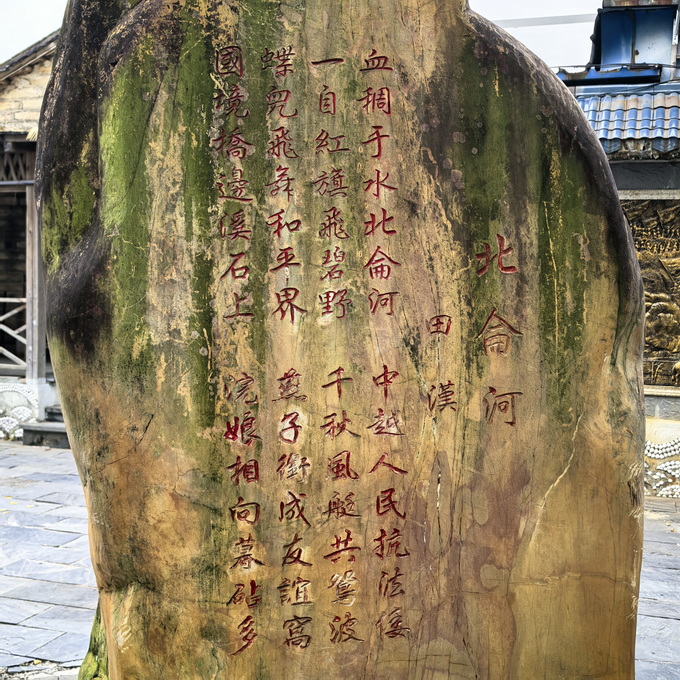 北侖河
田漢
血稠于水北侖河 中越人民抗法倭
一自紅旗飛碧野 千秋風艇共駕波
蝶兒飛舞和平界 燕子銜成友誼窩
國境橋邊溪石上 浣娘相向暮砧多